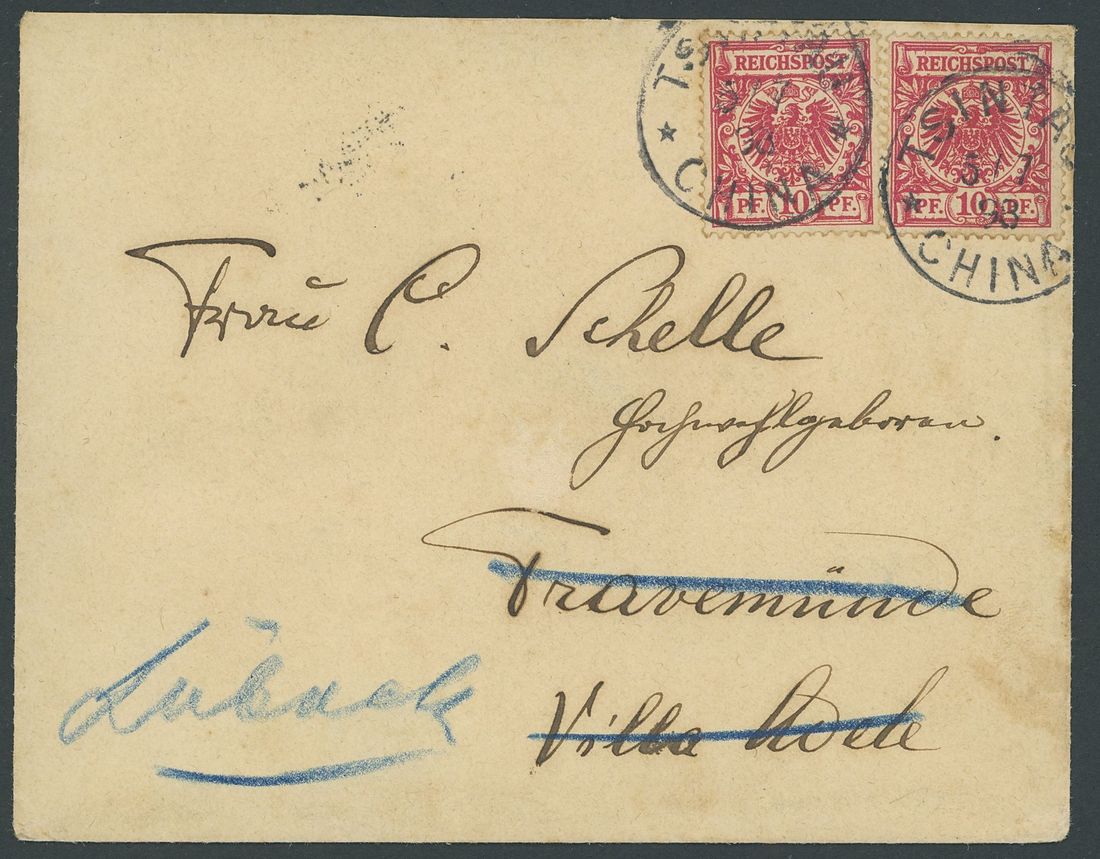 REICHSPOST REICHSPOST
PF. 10 PF. PF. 10 PF.
CHINA
TSINTAU
5/7
98
CHINA
Frau C. Schelle
Hochwohlgeboren.
Travemünde
Villa Adele
Lübeck